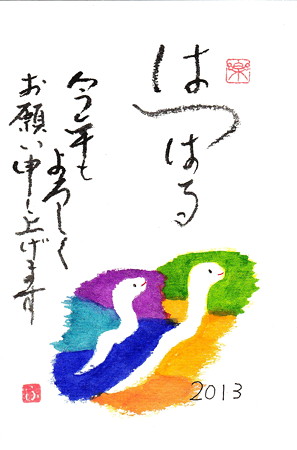 はつはる
今年も
よろしく
お願い申し上げます
2013